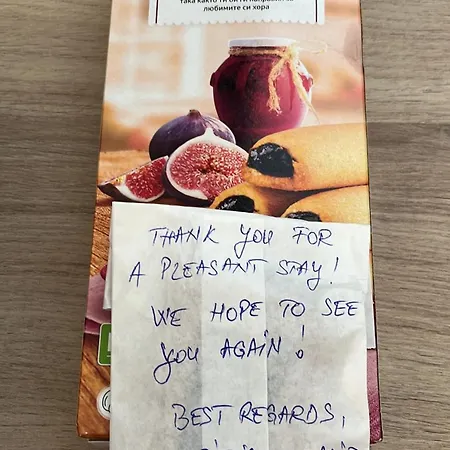 любимите си хора
THANK YOU FOR
A PLEASANT STAY!
WE HOPE TO SEE
YOU AGAIN!
BEST REGARDS,